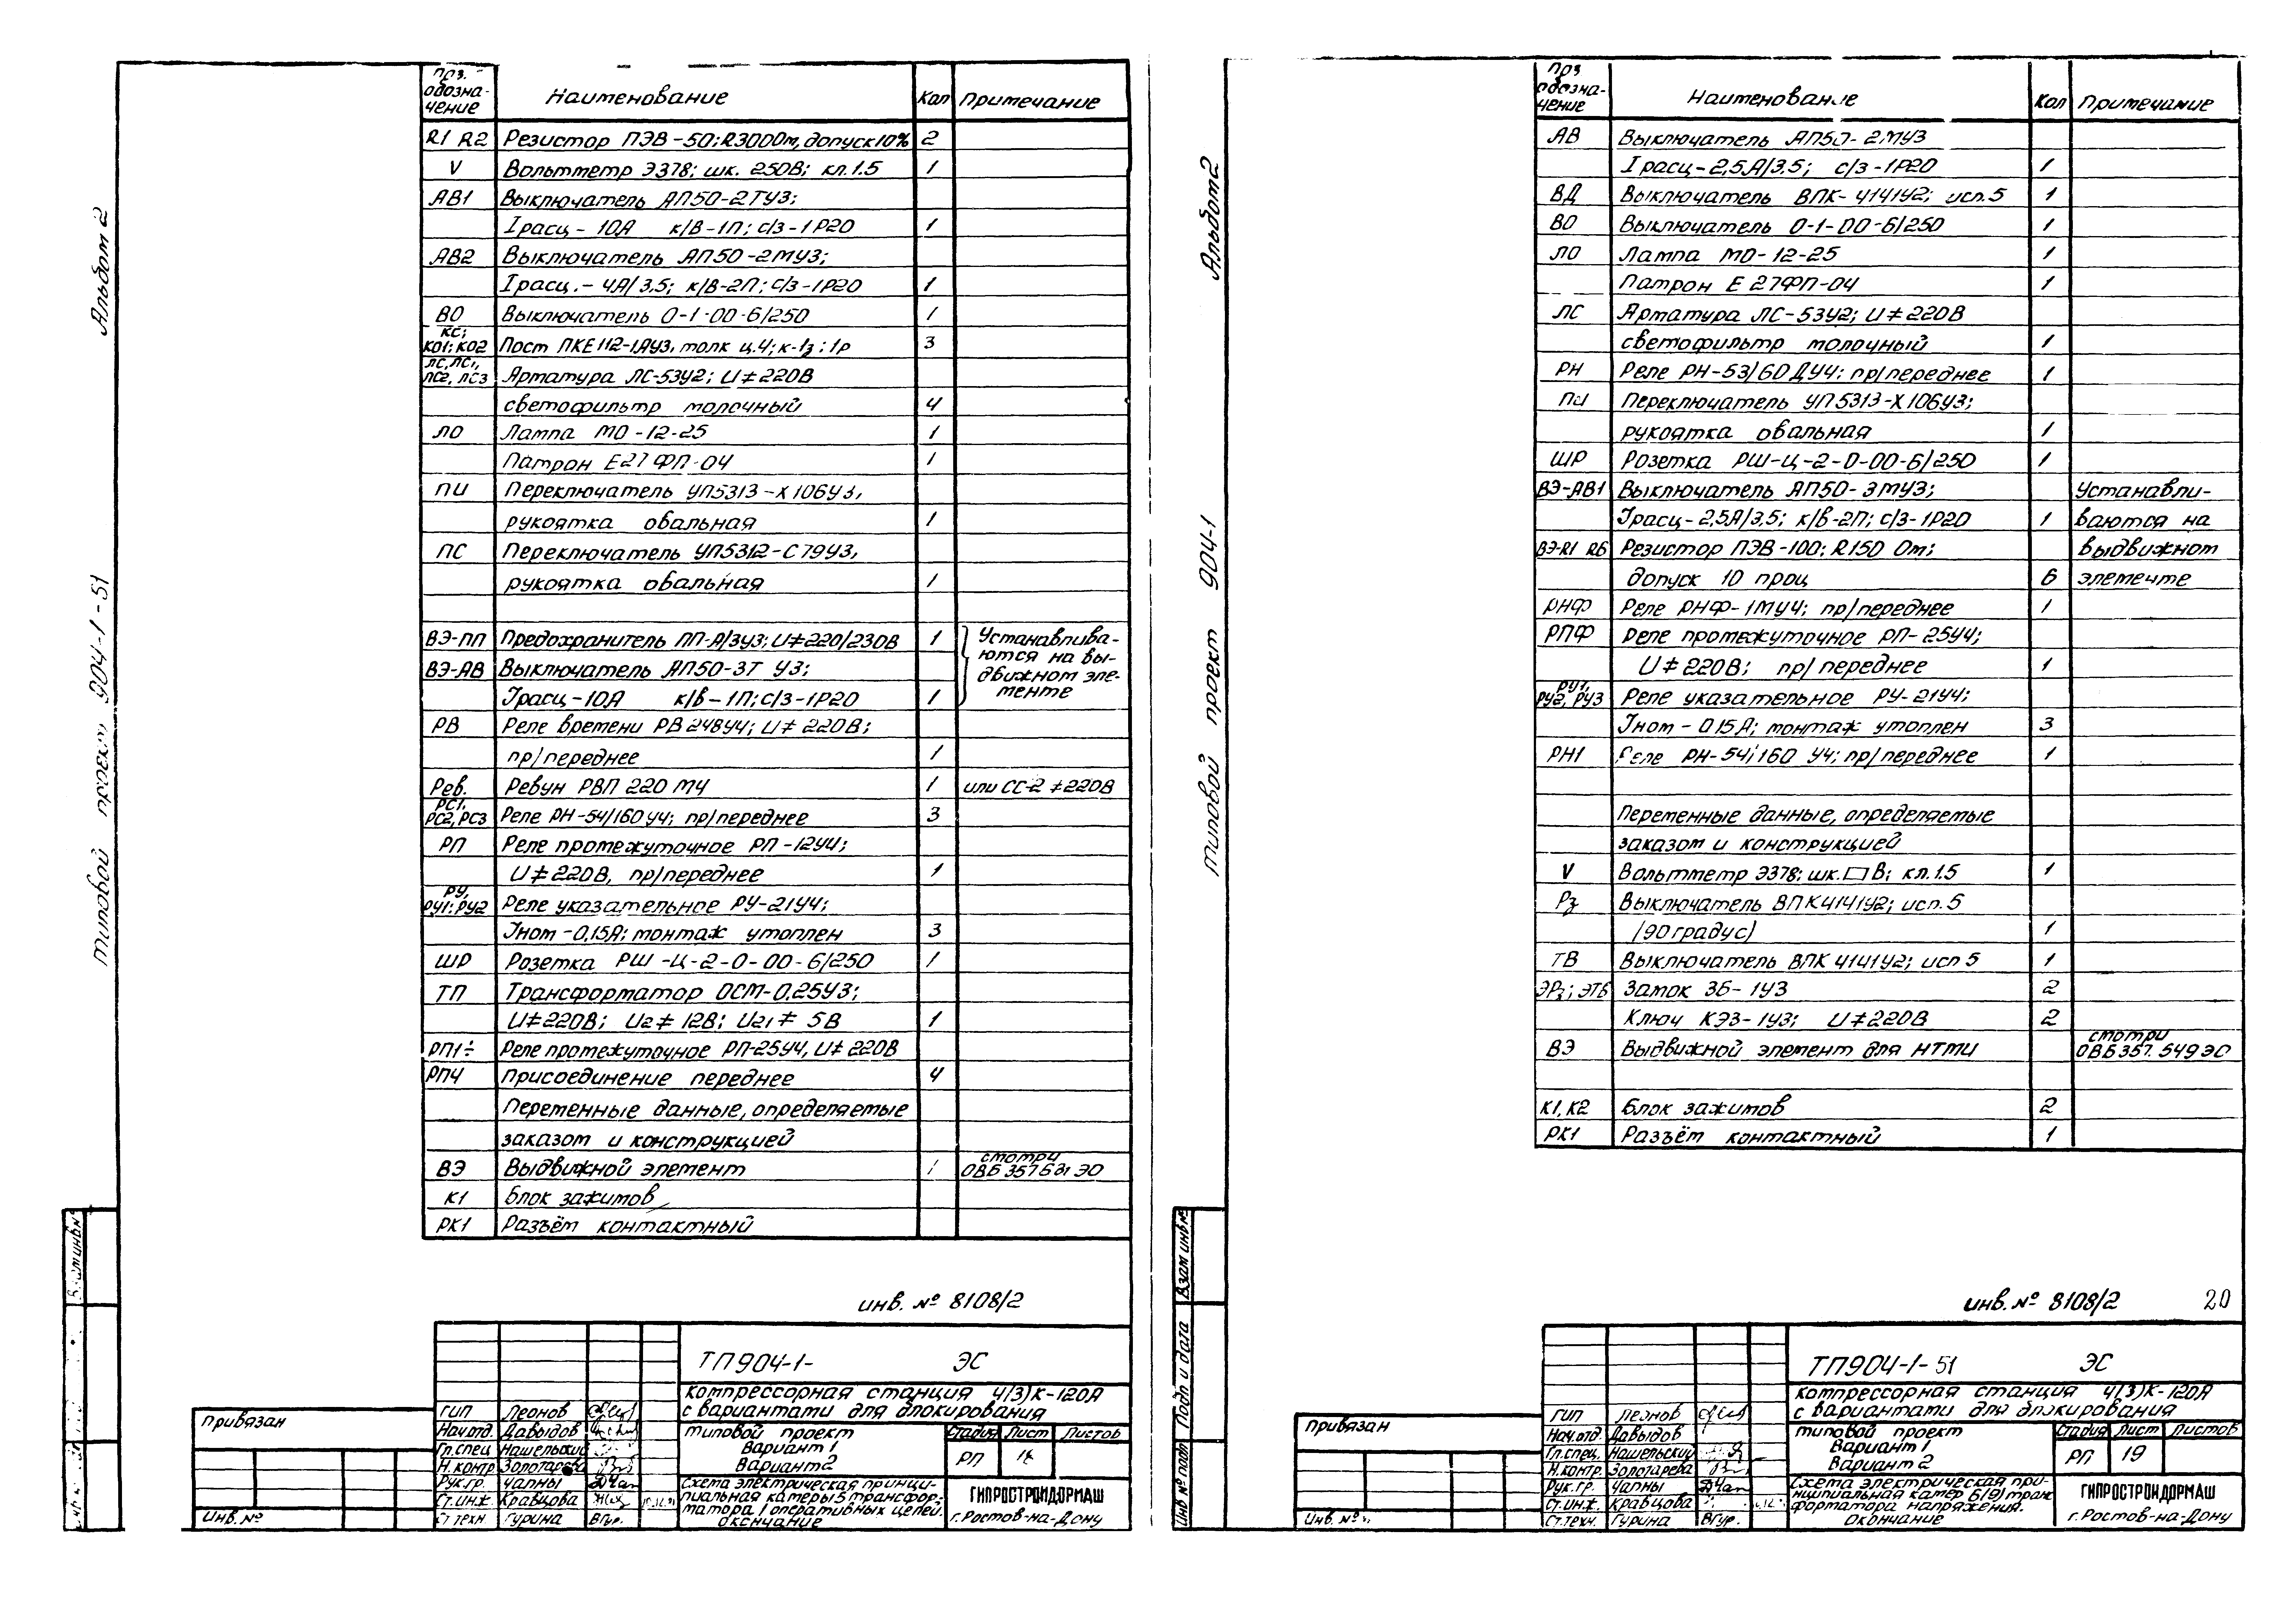 Альбом 2
Типовой проект 904-1-51
Поз. обозна-чение Наименование Кол Примечание
R1 R2 Резистор ПЭВ-50; R300Ом, допуск 10% 2
V Вольтметр Э378; шк. 250В; кл.1.5 1
АВ1 Выключатель АП50-2ТУЗ;
Iрасц - 10А к/в-1П; с/з-1Р20 1
АВ2 Выключатель АП50-2МУЗ;
Iрасц.- 4А/3,5; к/в-2П; с/з-1Р20 1
ВО Выключатель 0-1-00-6/250 1
КС; КО1; КО2 Пост ПКЕ 112-1АУЗ, толк ц.ч; к-1з; 1р 3
ЛС, ЛС1, ЛС2, ЛС3 Арматура ЛС-53У2; U≠220В
светофильтр молочный 4
ЛО Лампа МО-12-25 1
Патрон Е27 ФП-04 1
ПИ Переключатель УП5313-Х106УЗ,
рукоятка овальная 1
ПС Переключатель УП5312-С79УЗ,
рукоятка овальная 1
ВЭ-ПП Предохранитель ПП-А/3УЗ; U≠220/230В 1 Устанавлива-
ВЭ-АВ Выключатель АП50-3Т УЗ; ются на вы-
движном эле-
Iрасц-10А к/в-1П; с/з-1Р20 1 менте
РВ Реле времени РВ 248У4; U≠ 220В;
пр/переднее 1
Рев. Ревун РВП 220 М4 1 или СС-2 ≠220В
РС1, РС2, РС3 Реле РН-54/160 У4; пр/переднее 3
РП Реле промежуточное РП-12У4;
U≠220В, пр/переднее 1
РУ, РУ1; РУ2 Реле указательное РУ-21У4;
Iном-0,15А; монтаж утоплен 3
ШР Розетка РШ-Ц-2-0-00-6/250 1
ТП Трансформатор ОСМ-0,25УЗ;
U≠220В; U2≠12В; U21≠ 5В 1
РП1÷ Реле промежуточное РП-25У4, U≠ 220В
РП4 Присоединение переднее 4
Переменные данные, определяемые
заказом и конструкцией
ВЭ Выдвижной элемент 1 смотри ОВБ 357 631 ЭО
К1 Блок зажимов
РК1 Разъём контактный
инв. № 8108/2
ТП904-1- ЭС
компрессорная станция 4(3)К-120А
с вариантами для блокирования
ГИП Леонов
Нач.отд. Давыдов
Гл.спец Нашельский
Н.контр Золотарева
Рук.гр. Чапны
Ст.инж. Кравцова
Ст техн. Гурина
типовой проект
Вариант 1
Вариант 2
Стадия Лист Листов
РП
Схема электрическая принци-
пиальная камеры 5 трансфор-
матора / оперативных цепей.
окончание
ГИПРОСТРОЙДОРМАШ
г.Ростов-на-Дону
Привязан
Инв. №
Альбом 2
типовой проект 904-1
Взам инв №
Подп и дата
Инв № подл
Поз обозна-чение Наименование Кол Примечание
АВ Выключатель АП50-2МУЗ
Iрасц-2,5А/3,5; с/з-1Р20 1
ВД Выключатель ВПК-4141У2; исп.5 1
ВО Выключатель 0-1-00-6/250 1
ЛО Лампа МО-12-25 1
Патрон Е 27ФП-04 1
ЛС Арматура ЛС-53У2; U≠220В
светофильтр молочный 1
РН Реле РН-53/60 ДУ4; пр/переднее 1
ПИ Переключатель УП5313-Х106УЗ;
рукоятка овальная 1
ШР Розетка РШ-Ц-2-0-00-6/250 1
ВЭ-АВ1 Выключатель АП50-3МУЗ; Устанавли-
Iрасц-2,5А/3,5; к/в-2П; с/з-1Р20 1 ваются на
ВЭ-R1 R6 Резистор ПЭВ-100; R150 Ом; выдвижном
допуск 10 проц 6 элементе
РНФ Реле РНФ-1МУ4; пр/переднее 1
РПФ Реле промежуточное РП-25У4;
U≠220В; пр/переднее 1
РУ1, РУ2, РУ3 Реле указательное РУ-21У4;
Iном-0,15А; монтаж утоплен 3
РН1 Реле РН-54/160 У4; пр/переднее 1
Переменные данные, определяемые
заказом и конструкцией
V Вольтметр Э378; шк. □ В; кл.1.5 1
Рз Выключатель ВПК4141У2; исп.5
/90градус/ 1
ТВ Выключатель ВПК 4141У2; исп 5 1
ЭРз; ЭТБ Замок ЗБ-1УЗ 2
Ключ КЭЗ-1УЗ; U≠220В 2
ВЭ Выдвижной элемент для НТМИ смотри ОВБ 357. 549 ЭО
К1, К2 Блок зажимов 2
РК1 Разъём контактный 1
инв. № 8108/2 20
ТП904-1-51 ЭС
компрессорная станция 4(3)К-120А
с вариантами для блокирования
ГИП Леонов
Нач.отд. Давыдов
Гл.спец. Нашельский
Н.контр. Золотарева
Рук.гр. Чапны
Ст.инж. Кравцова
Ст.техн. Гурина
типовой проект
Вариант 1
Вариант 2
Стадия Лист Листов
РП 19
Схема электрическая при-
нципиальная камер 6(9) тран
форматора напряжения.
окончание
ГИПРОСТРОЙДОРМАШ
г.Ростов-на-Дону
Привязан
Инв. №